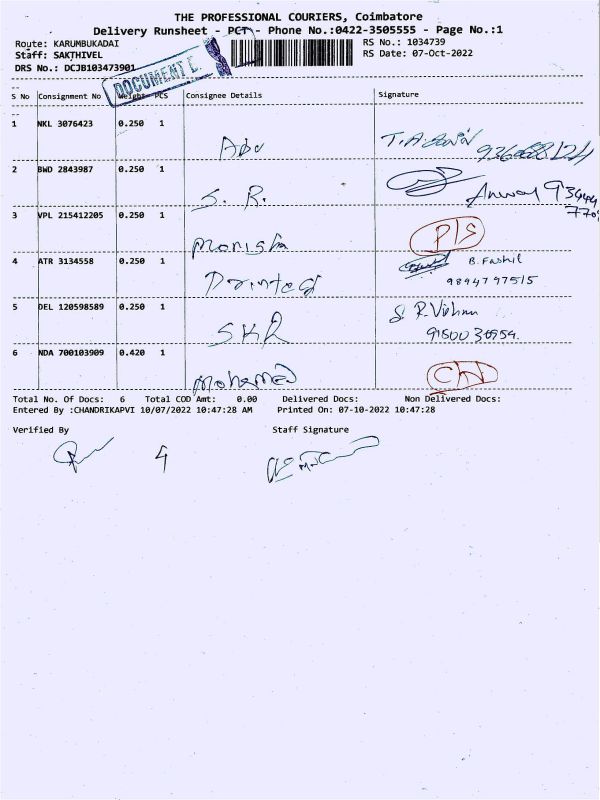 THE PROFESSIONAL COURIERS, Coimbatore
Delivery Runsheet - PCT - Phone No.:0422-3505555 - Page No.:1
Route: KARUMBUKADAI RS No.: 1034739
Staff: SAKTHIVEL RS Date: 07-Oct-2022
DRS No.: DCJB103473901
DOCUMENT
S No Consignment No Weight PCS Consignee Details Signature
1 NKL 3076423 0.250 1
Abu
2 BWD 2843987 0.250 1
S. R. Anwar
3 VPL 215412205 0.250 1
Monisha P/S
4 ATR 3134558 0.250 1 B. Fashil
9894797515
5 DEL 120598589 0.250 1
SKR
6 NDA 700103909 0.420 1
Mohamed
Total No. Of Docs: 6 Total COD Amt: 0.00 Delivered Docs: Non Delivered Docs:
Entered By :CHANDRIKAPVI 10/07/2022 10:47:28 AM Printed On: 07-10-2022 10:47:28
Verified By Staff Signature
4